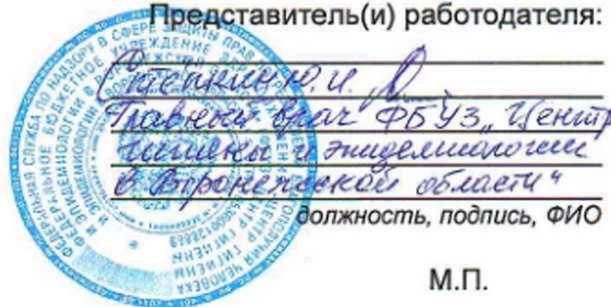 Представитель(и) работодателя:
Стёпкин Ю.И.
Главный врач ФБУЗ „Центр
гигиены и эпидемиологии
в Воронежской области"
должность, подпись, ФИО
М.П.
ФЕДЕРАЛЬНАЯ СЛУЖБА ПО НАДЗОРУ В СФЕРЕ ЗАЩИТЫ ПРАВ
ФЕДЕРАЛЬНОЕ БЮДЖЕТНОЕ УЧРЕЖДЕНИЕ